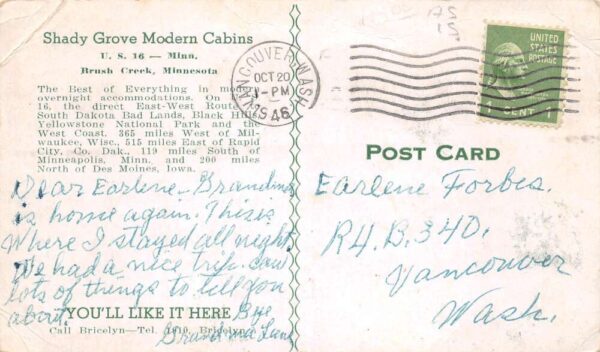 Shady Grove Modern Cabins
U. S. 16 — Minn.
Brush Creek, Minnesota
The Best of Everything in modern
overnight accommodations. On U. S.
16, the direct East-West Route to
South Dakota Bad Lands, Black Hills
Yellowstone National Park and the
West Coast. 365 miles West of Mil-
waukee, Wisc., 515 miles East of Rapid
City, So. Dak., 119 miles South of
Minneapolis, Minn. and 200 miles
North of Des Moines, Iowa.
Dear Earlene - Grandma
is home again. This is
where I stayed all night
We had a nice trip. saw
lots of things to tell you
about.
Bye
Grandma
YOU'LL LIKE IT HERE
Call Bricelyn—Tel. Bricelyn
VANCOUVER, WASH.
OCT 20
PM
1946
UNITED
STATES
POSTAGE
1 CENT 1
POST CARD
Earlene Forbes.
R4, B. 340.
Vancouver
Wash.